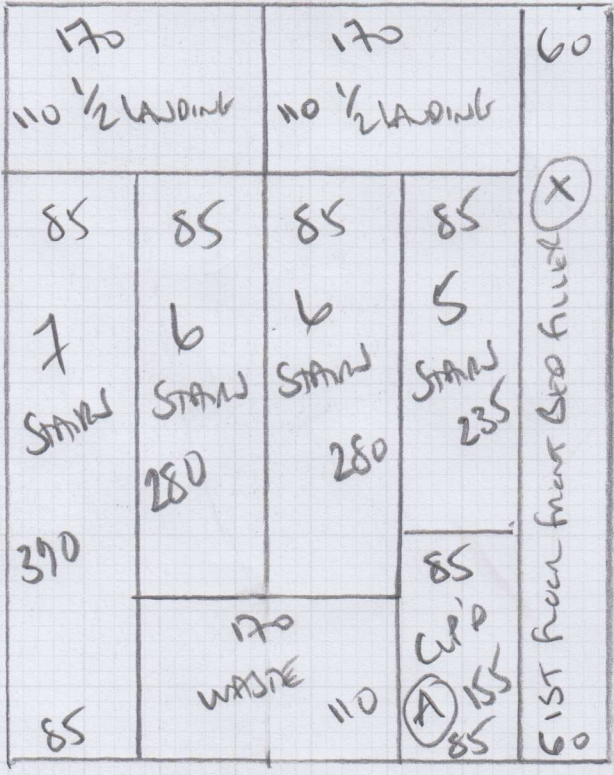 170
110 1/2 LANDING
170
110 1/2 LANDING
60
85
7
STAIRS
390
85
85
6
STAIRS
280
85
6
STAIRS
280
85
5
STAIRS
235
170
WASTE
110
85
CUP'D
A 155
85
X
1ST FLOOR FRONT BED FILLER
60